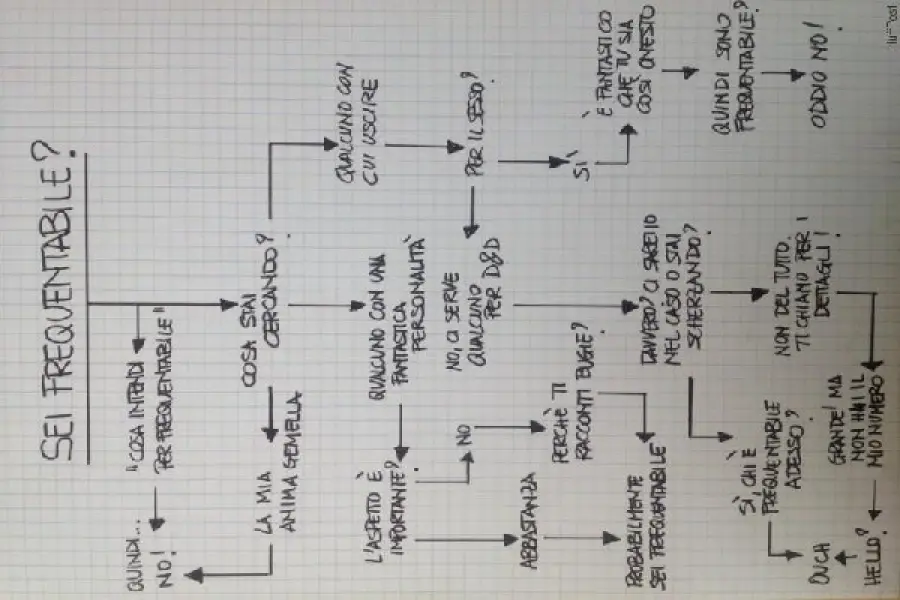 SEI FREQUENTABILE?
"COSA INTENDI
PER FREQUENTABILE"
QUINDI...
NO!
COSA STAI
CERCANDO?
LA MIA
ANIMA GEMELLA
QUALCUNO CON
CUI USCIRE
QUALCUNO CON UNA
FANTASTICA
PERSONALITÀ
L'ASPETTO È
IMPORTANTE?
PER IL SESSO?
NO, CI SERVE
QUALCUNO
PER D&D
NO
ABBASTANZA
SÌ
PERCHÈ TI
RACCONTI BUGIE?
È FANTASTICO
CHE TU SIA
COSÌ ONESTO
DAVVERO? CI SARESTI
NEL CASO O STAI
SCHERZANDO?
PROBABILMENTE
SEI FREQUENTABILE
QUINDI SONO
FREQUENTABILE?
SÌ, CHI È
FREQUENTABILE
ADESSO?
NON DEL TUTTO.
TI CHIAMO PER I
DETTAGLI!
ODDIO NO!
OUCH
GRANDE! MA
NON HAI IL
MIO NUMERO
HELLO?